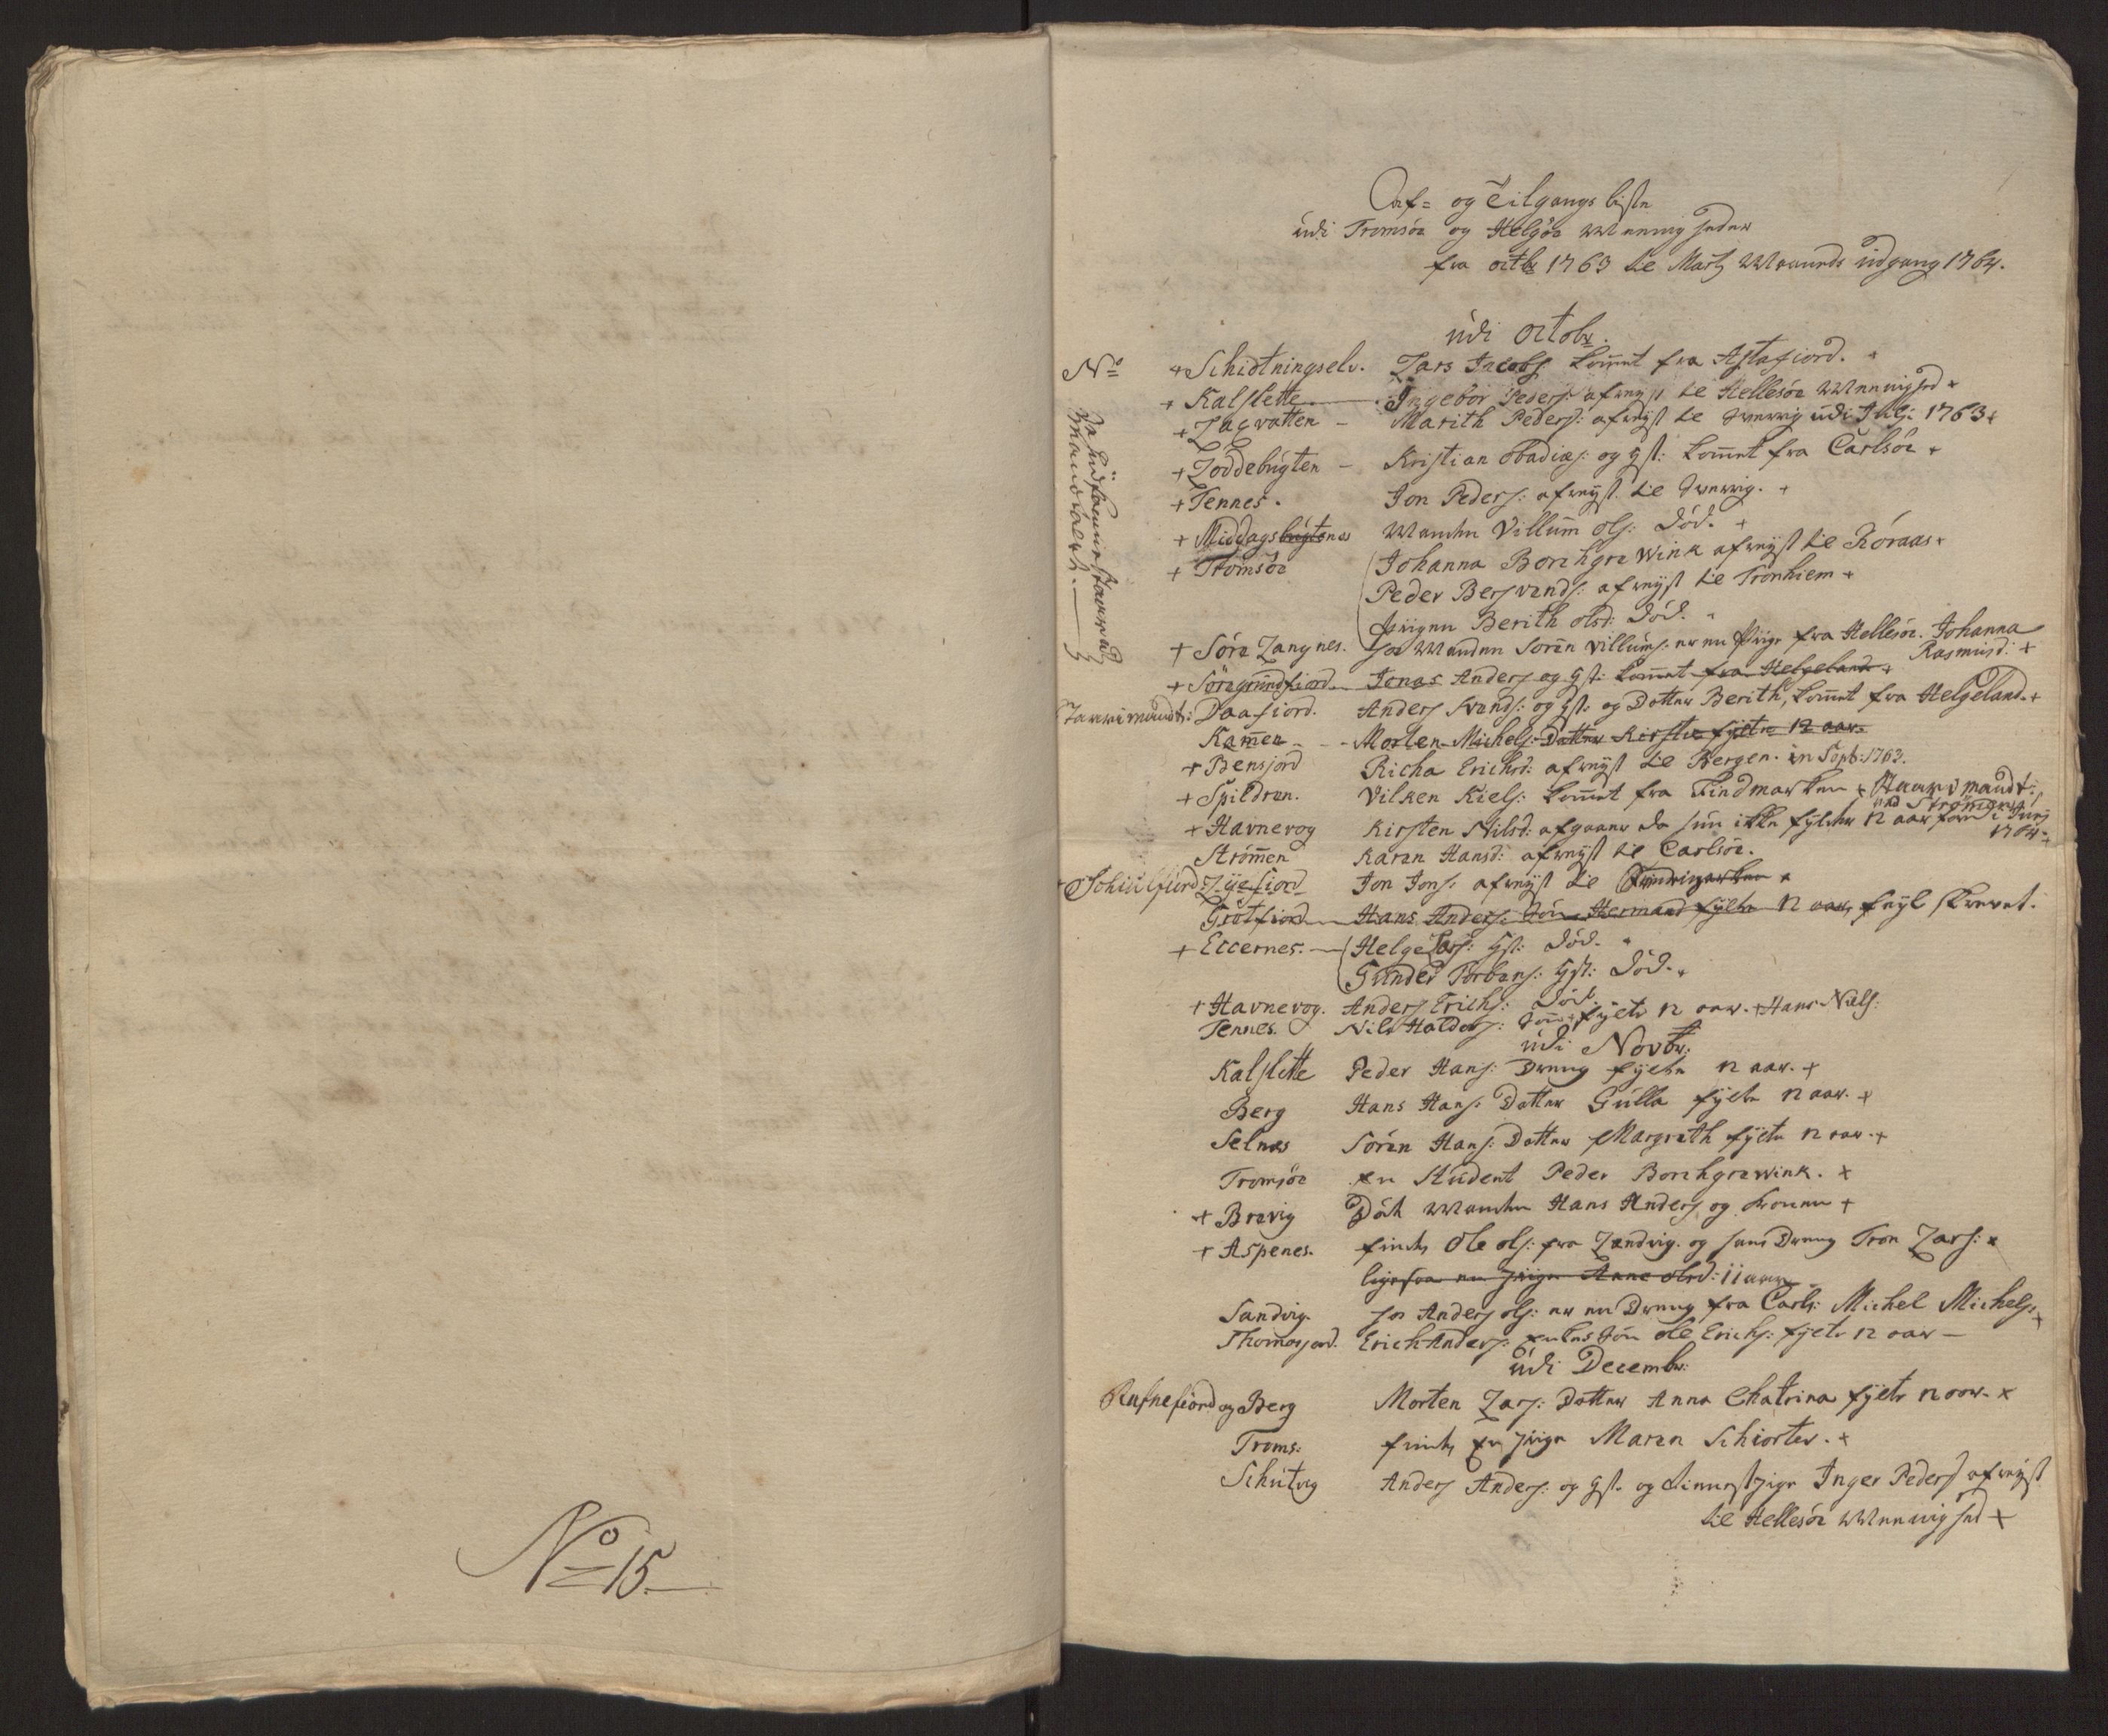 No 15.
Af- og Tilgangs liste
udi Tromsöe og Helgöe Menigheder
fra octbr 1763 til Martj Maaneds udgang 1764.
udi Octobr.
No +Schidtningselv. Lars Jacobs: kommet fra Astafiord. +
+ Kalslette Ingebor Peders: afreyst til Hellesöe Menighed +
+ Lagvatten - Marith Peders: afreyst til Sverrig udi Julj: 1763 +
+ Loddebugten - Kristian Obadias: og Hst: kommet fra Carlsöe +
+ Tennes. Jon Peders: afreyst til Sverrig. +
+ Middagsbugtenes Manden Villum Ols: död. +
+ Tromsöe Johanna Borchgrewink afreyst til Röraas +
Peder Bersvends: afreyst til Tronhiem +
Pigen Berith Olsd: död.
+ Söre Langnes. hos Manden Sören Villums: er en Pige fra Hellesöe. Johanna
Rasmusd: +
+ Söregrundfiord Jonas Anders og Hst: kommet fra Helgeland +
Daafiord. Anders Svends: og Hst: og Datter Berith, kommet fra Helgeland. +
Kamen - Morten Michels: Datter Kirstie fylte 12 aar.
+ Bensjord Richa Erichsd: afreyst til Bergen. in Septb: 1763.
+ Spildren. Vilken Niels: kommet fra Findmarken +
+ Havnevog Kirsten Nilsd: afgaaer da hun ikke fylder 12 aar for i Junj
1764. +
Strömen Karen Hansd: afreyst til Carlsöe.
Lyefiord Jon Jons: afreyst til Findmarken +
Grötfiord Hans Anders: Sön Hermand fylte 12 aar, feyl skrevet.
+ Eccernes. Helge Lars: Hst: död.
Gunder Torbens: Hst: död.
+ Havnevog. Anders Erichs: död.
Tennes. Nils Halders: Sön fylte 12 aar. + Hans Niels:
udi Novbr:
Kalslette Peder Hans: Dreng fylte 12 aar. +
Berg Hans Hans: Datter Gulla fylte 12 aar. +
Selnes Sören Hans: Datter Margreth fylte 12 aar. +
Tromsöe en Student Peder Borchgrewink. +
+ Brevig Död Manden Hans Anders og Konen +
+ Aspenes. findes Ole Ols: fra Landvig. og hans Dreng Tron Lars: +
ligesaa en pige Anne Olsd: 11 aar
Sandvig. hos Anders Ols: er en Dreng fra Carls: Michel Michels: +
Thomasjord. Erich Anders: Sön Ole Erichs: fylte 12 aar -
udi Decembr:
Refsnefiord og Berg Morten Lars: Datter Anna Chatrina fylte 12 aar. +
Troms: findes en pige Maren Schiorter. +
Schutvig Anders Anders: og Hst. og tienestpige Inger Pedersd afreyst
til Hellesöe Menighed +